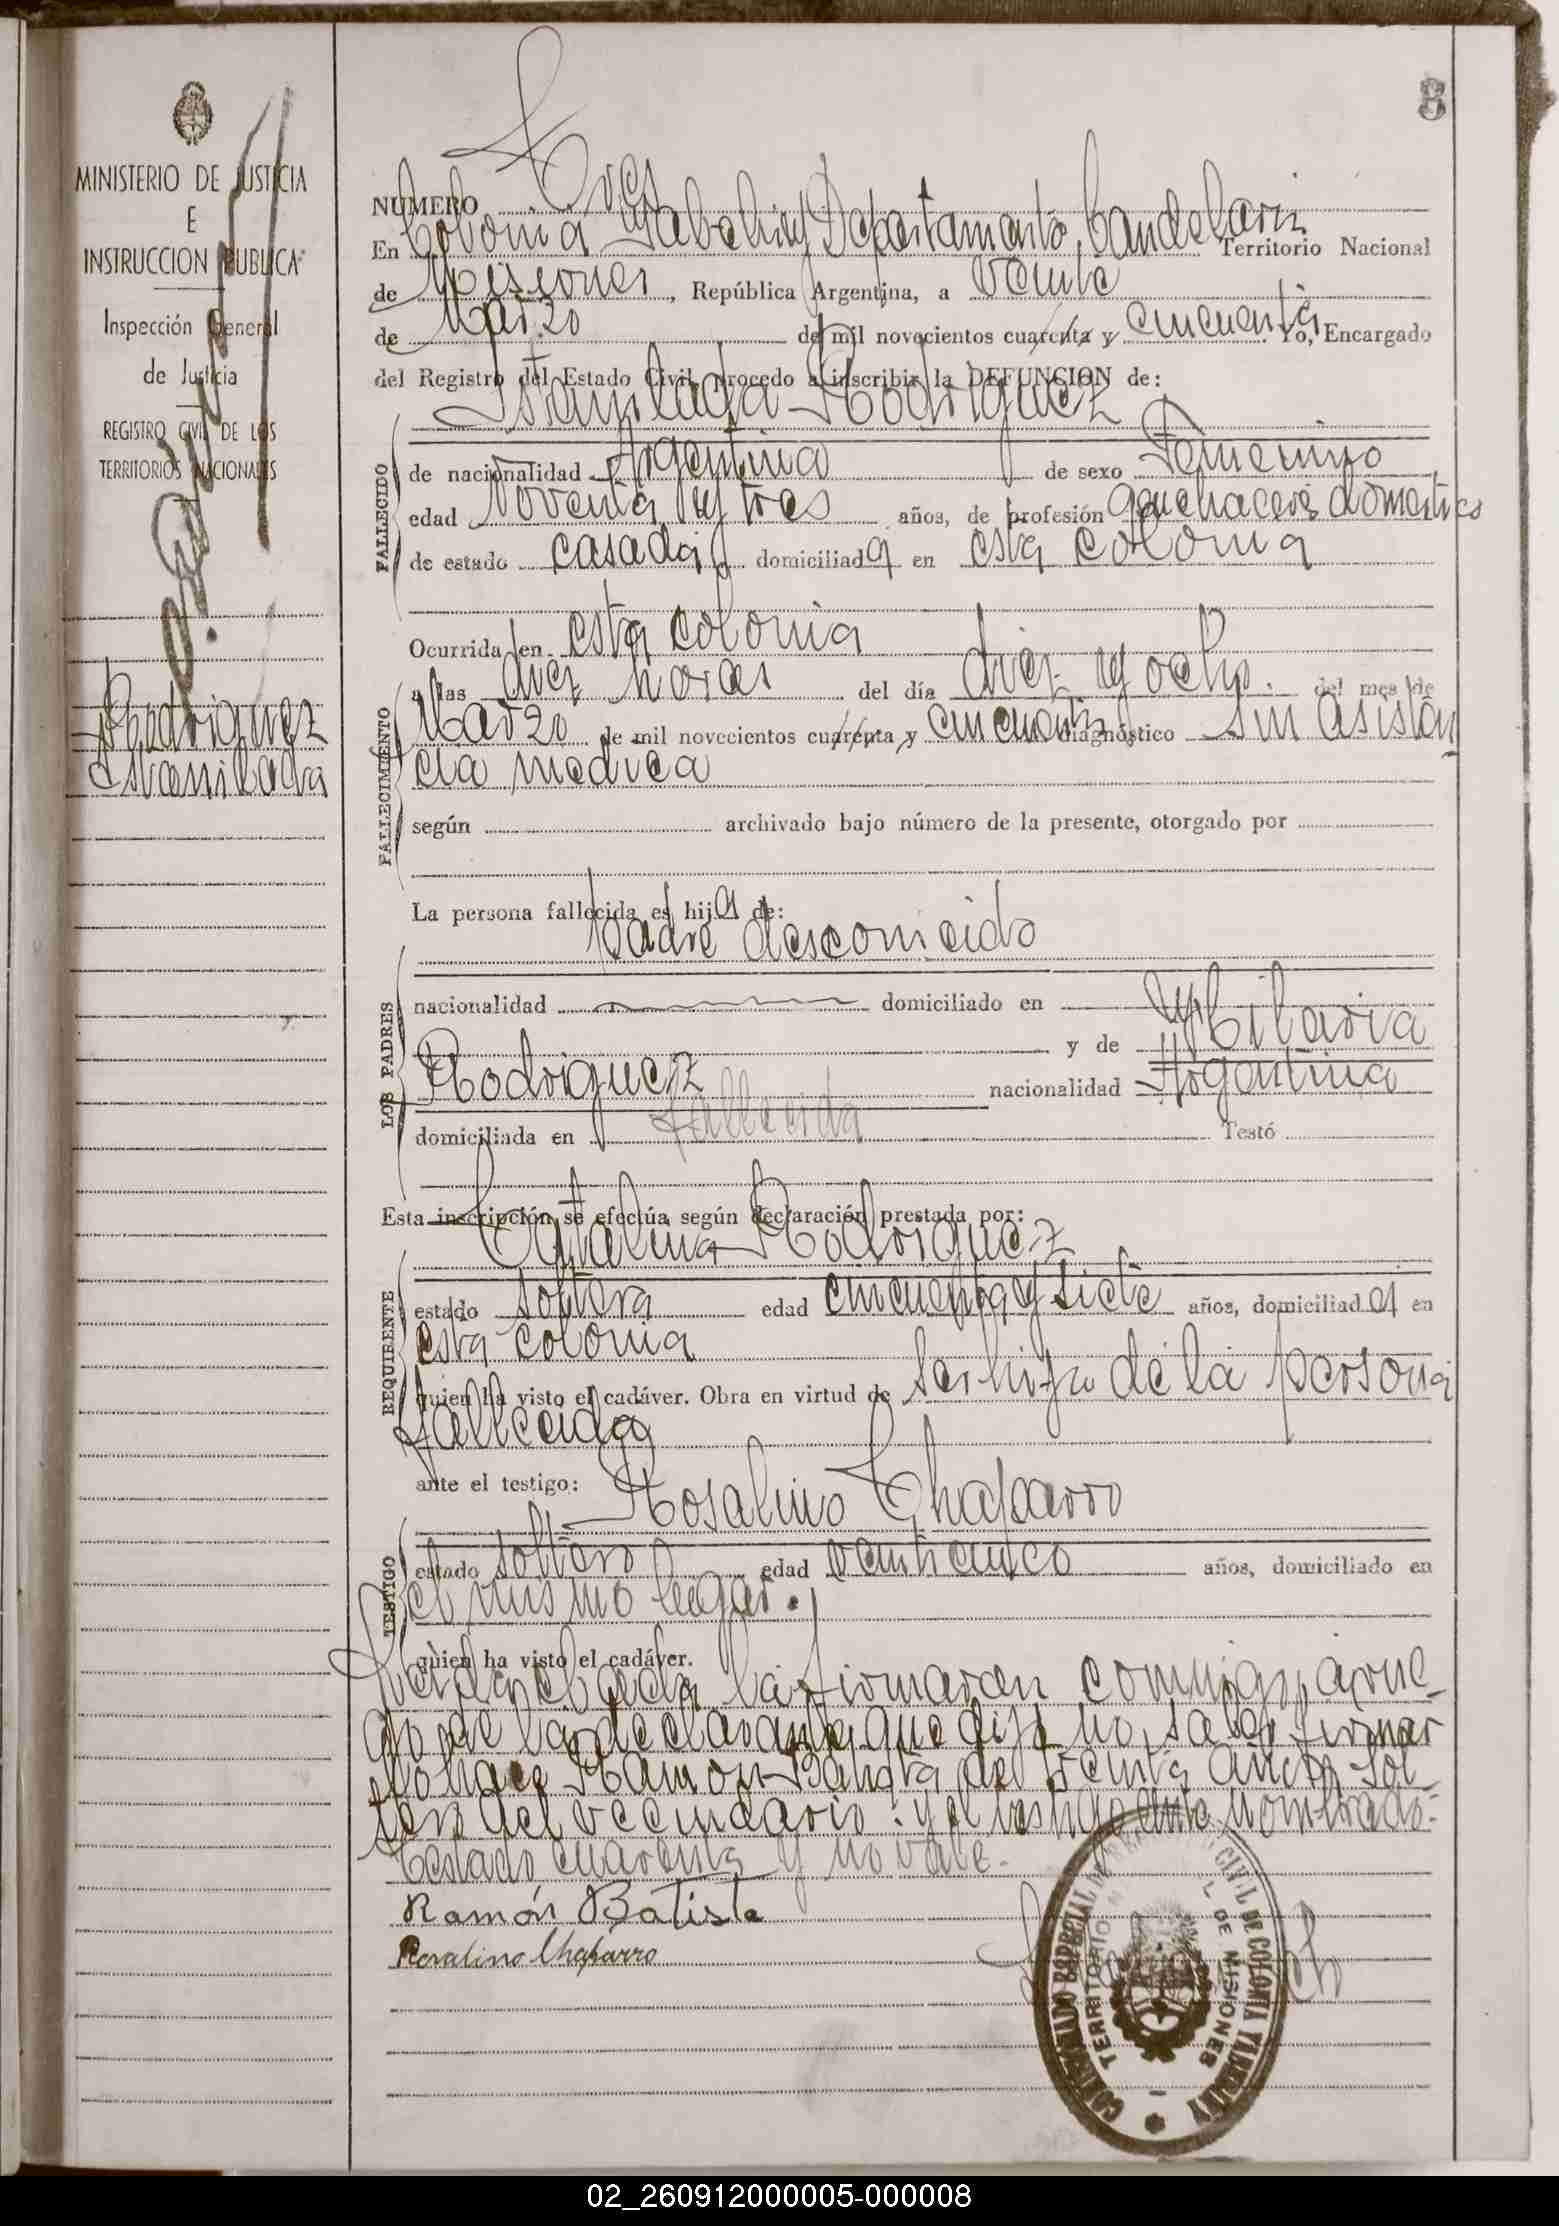 8
MINISTERIO DE JUSTICIA
E
INSTRUCCION PUBLICA
Inspección General
de Justicia
REGISTRO CIVIL DE LOS
TERRITORIOS NACIONALES
Rodriguez
Estanilada
NUMERO Tres
En Colonia Yabebiry Departamento Candelaria Territorio Nacional
de Misiones, República Argentina, a veinte
de Marzo de mil novecientos cuarenta y cincuenta. Yo, Encargado
del Registro del Estado Civil, procedo a inscribir la DEFUNCION de:
Estanilada Rodriguez
FALLECIDO
de nacionalidad Argentina de sexo Femenino
edad Noventa y tres años, de profesión quehaceres domesticos
de estado casada domiciliada en esta colonia
FALLECIMIENTO
Ocurrida en esta colonia
a las diez horas del día diez y ocho del mes de
Marzo de mil novecientos cuarenta y cincuenta diagnóstico sin asisten
cia medica
según archivado bajo número de la presente, otorgado por
La persona fallecida es hija de:
LOS PADRES
Padre desconicido
nacionalidad domiciliado en
y de Hilaria
Rodriguez nacionalidad Argentina
domiciliada en fallecida Testó
Esta inscripción se efectúa según declaración prestada por:
REQUIRENTE
Catalina Rodriguez
estado soltera edad cincuenta y siete años, domiciliada en
esta colonia
quien ha visto el cadáver. Obra en virtud de ser hija de la persona
fallecida
ante el testigo: Rosalino Chaparro
TESTIGO
estado soltero edad veinticinco años, domiciliado en
el mismo lugar.
quien ha visto el cadáver.
Leida el acta la firmaron conmigo, a rue-
go de la declarante que dijo no saber firmar
lo hace Ramon Batista de treinta años, sol-
tero del vecindario: y el testigo ante nombrado:
Testado cuarenta y no vale.
Ramón Batista
Rosalino Chaparro
TERRITORIO
DE MISIONES
02_260912000005-000008